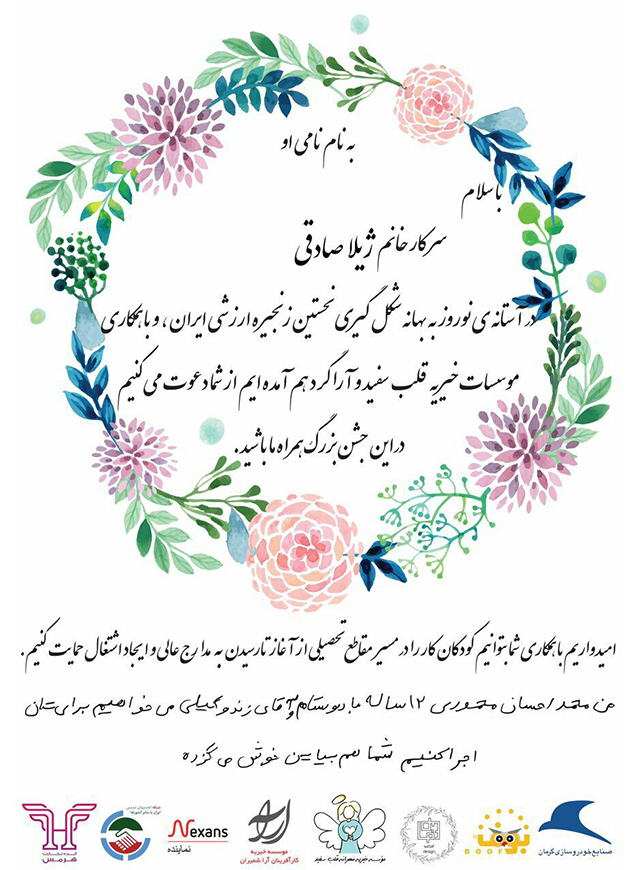 به نام نامی او
با سلام
سرکار خانم ژیلا صادقی
در آستانه ی نوروز به بهانه شکل گیری نخستین زنجیره ارزشی ایران ، و با همکاری
موسسات خیریه قلب سفید و آرا گرد هم آمده ایم از شما دعوت می کنیم
در این جشن بزرگ همراه ما باشید.
امیدواریم با همکاری شما بتوانیم کودکان کار را در مسیر مقاطع تحصیلی از آغاز تا رسیدن به مدارج عالی و ایجاد اشتغال حمایت کنیم.
من محمد احسان ۱۲ ساله با دوستام و آقای زند وکیلی می خواهیم برای تان
اجرا کنیم شما هم بیایین خوش می گزره
صنایع خودروسازی کرمان
BOOF
design
قلب سفید
موسسه خیریه
کارآفرینان آرا شمیران
Nexans
نماینده
شبکه انجمنهای دوستی
ایران با سایر کشورها
هرمس